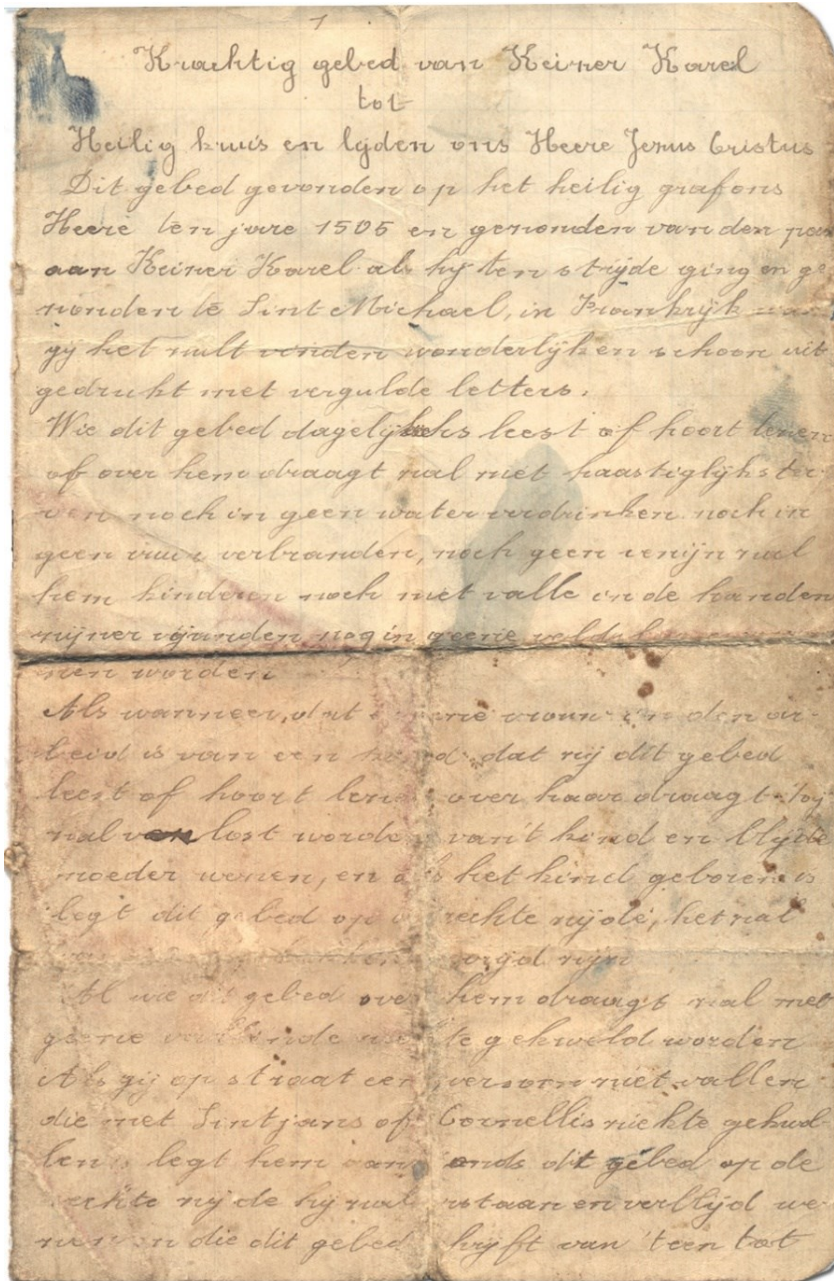 1
Krachtig gebed van Keizer Karel
tot
Heilig kruis en lyden ons Heere Jezus Cristus
Dit gebed gevonden op het heilig grafons
Heere ten jare 1505 en gezonden van den pau
aan Keizer Karel als hy ten stryde ging en ge
zonden te Sint Michael, in Frankryk
gy het zult vinden wonderlyken schoon uit
gedrukt met vergulde letters.
Wie dit gebed dagelyks leest of hoort lezen
of over hem draagt zal niet haastiglyk ster
ven noch in geen water verdrinken noch in
geen vuur verbranden, noch geen venijn zal
hem hinderen noch niet valle in de handen
zijner vijanden nog in geene
nen worden
Als wanneer, dat eene vrouw in den ar
beid is van een dat zij dit gebed
leest of hoort leze over haar draagt zy
zal verlost worde van't kind en blyde
moeder wezen, en als het kind geboren is
legt dit gebed op rechte zijde, het zal
zijn
Al wie dit gebed over hem draagt zal met
geene te gekweld worden
Als gij op straat een persoon ziet vallen
die met Sint jans of Cornellis ziekte gekwol
len legt hem dit gebed op de
rechte zyde hy zal opstaan en verblyd we
zen en die dit gebed schryft van 'teen tot